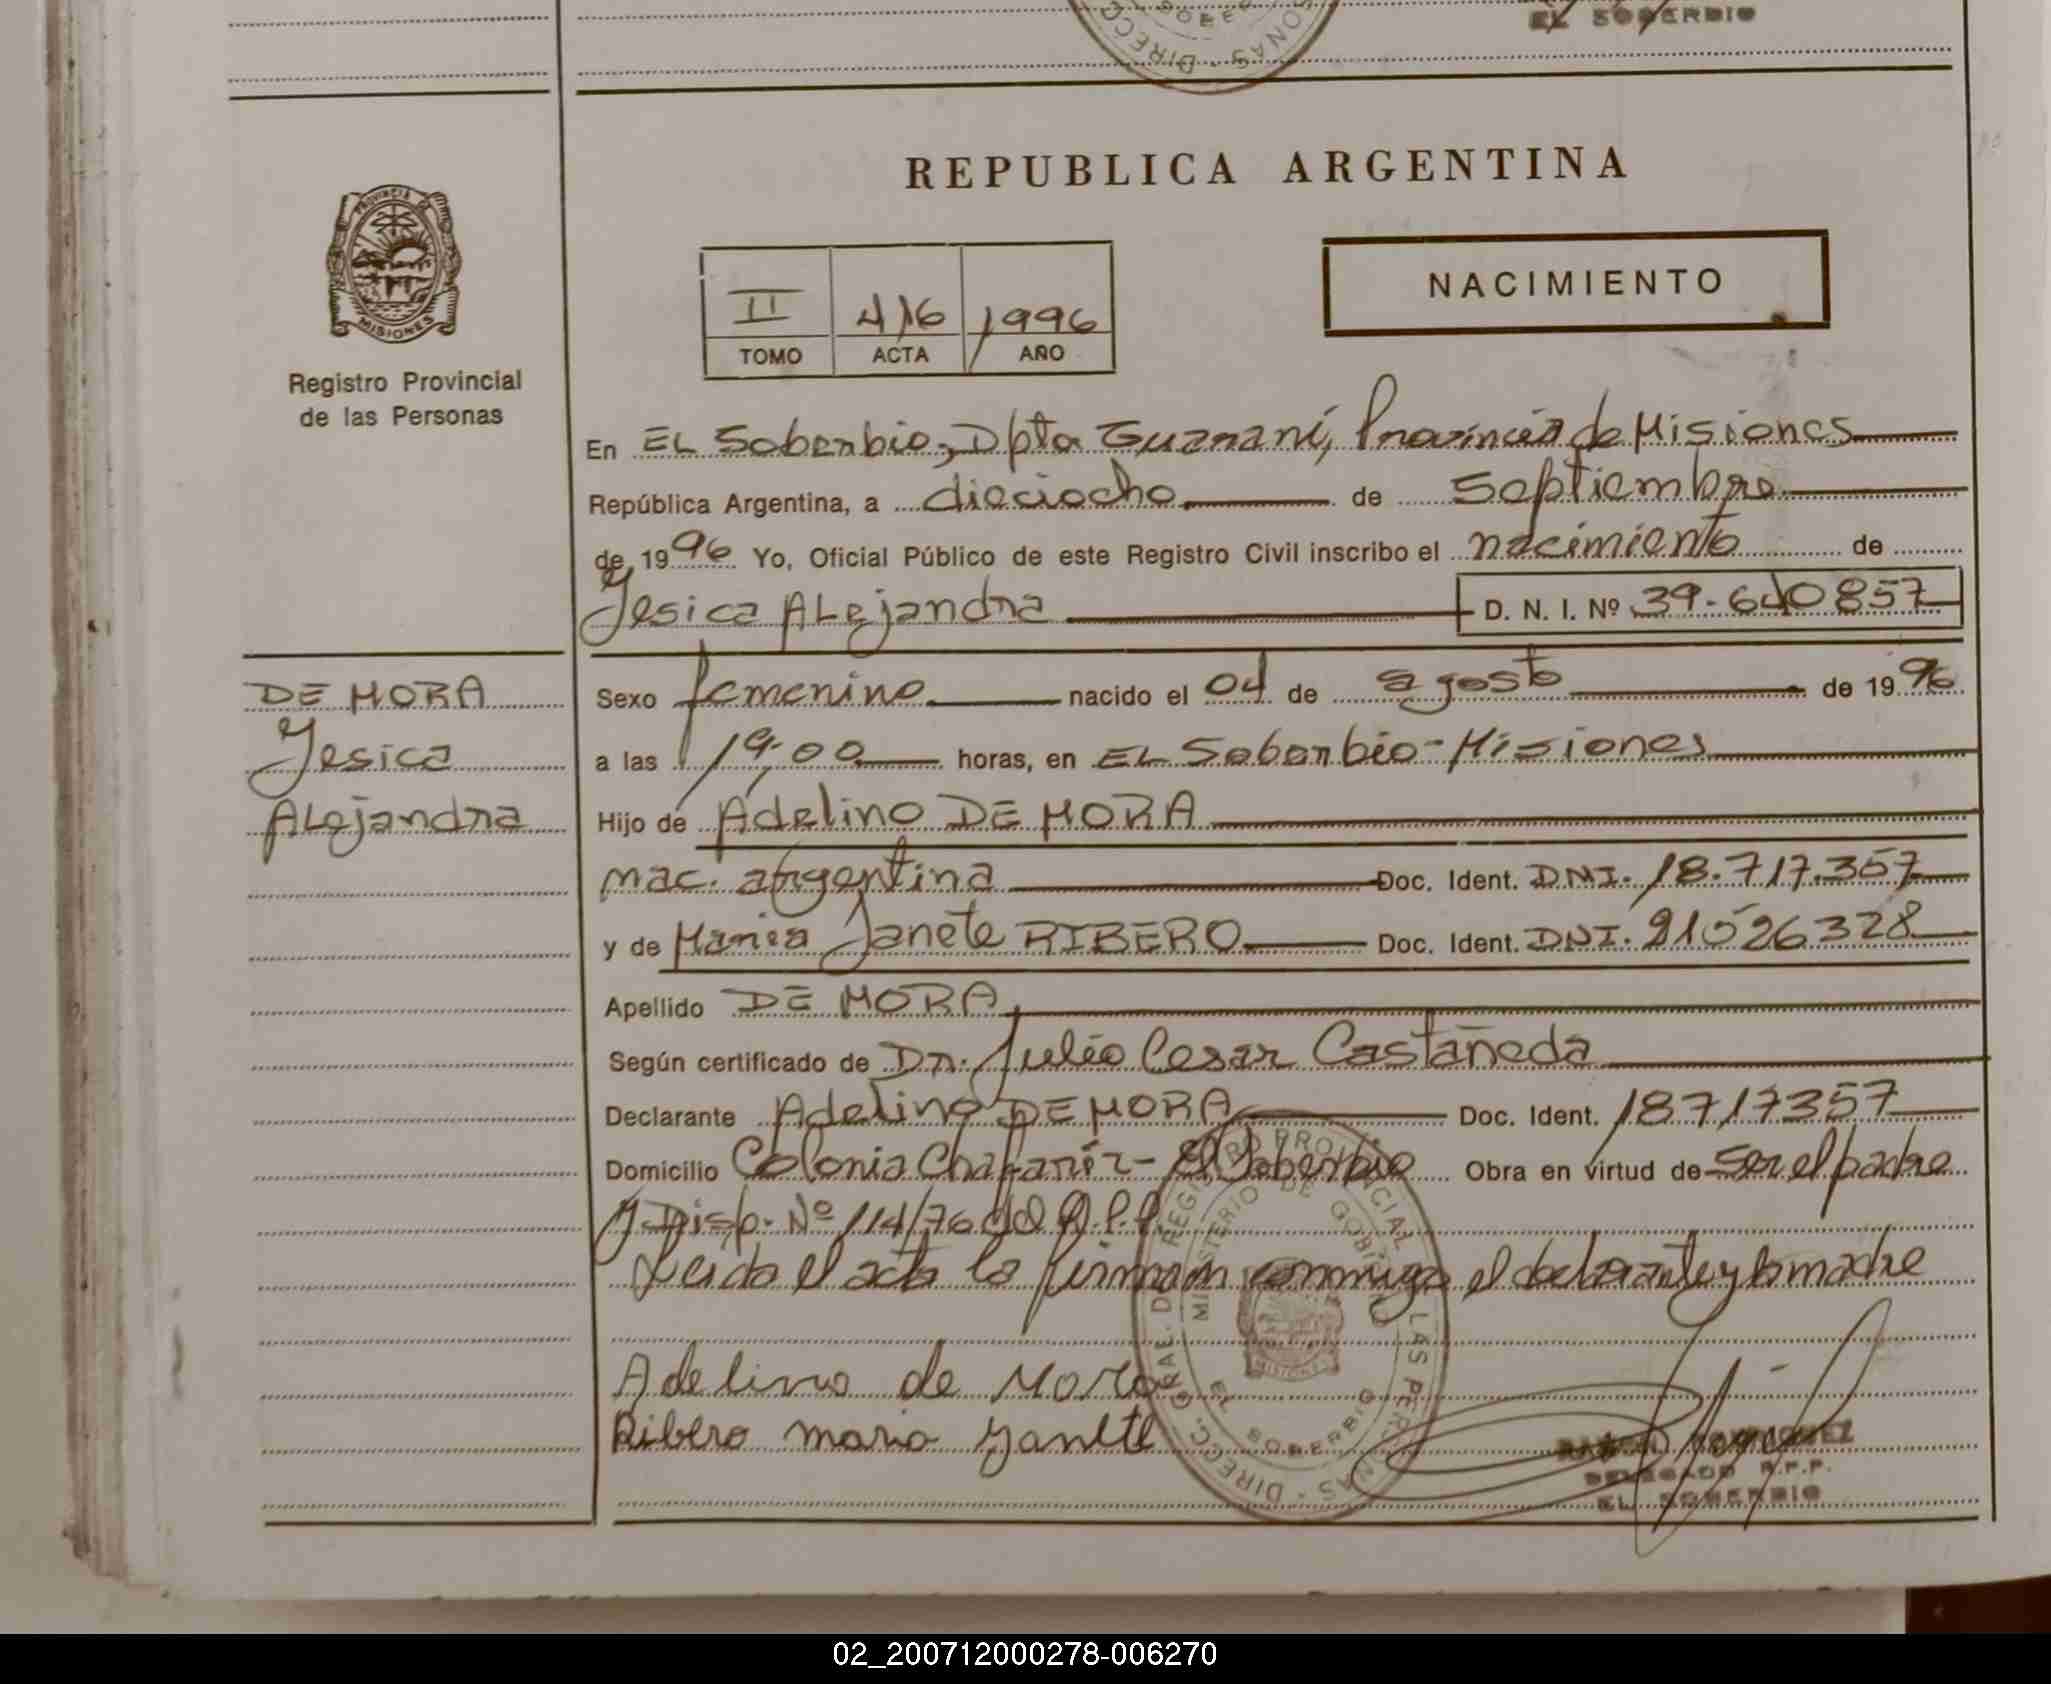 EL SOBERBIO
REPUBLICA ARGENTINA
PROVINCIA DE
MISIONES
Registro Provincial
de las Personas
NACIMIENTO
II 416 1996
TOMO ACTA AÑO
En EL Soberbio, Dpto Guaraní, Provincia de Misiones
República Argentina, a dieciocho de Septiembre
de 1996 Yo, Oficial Público de este Registro Civil inscribo el nacimiento de
Yesica ALejandra D. N. I. Nº 39.640857
DE MORA
Yesica
ALejandra
Sexo femenino nacido el 04 de agosto de 1996
a las 19,00 horas, en EL Soberbio-Misiones
Hijo de Adelino DE MORA
nac. argentina Doc. Ident. DNI. 18.717.357
y de Maria Janete RIBERO Doc. Ident. DNI. 21526328
Apellido DE MORA
Según certificado de Dr. Julio Cesar Castañeda
Declarante Adelino DE MORA Doc. Ident. 18717357
Domicilio Colonia Chafariz - El Soberbio Obra en virtud de ser el padre
y Disp. Nº 114/76 del R.P.P.
Leida el acta la firman conmigo el declarante y la madre
Adelino de Mora
Ribero maria yanete
DIRECC. GRAL. DE REGISTRO PROVINCIAL DE LAS PERSONAS
MINISTERIO DE GOBIERNO
EL SOBERBIO
DELEGADO R.P.P.
EL SOBERBIO
02_200712000278-006270